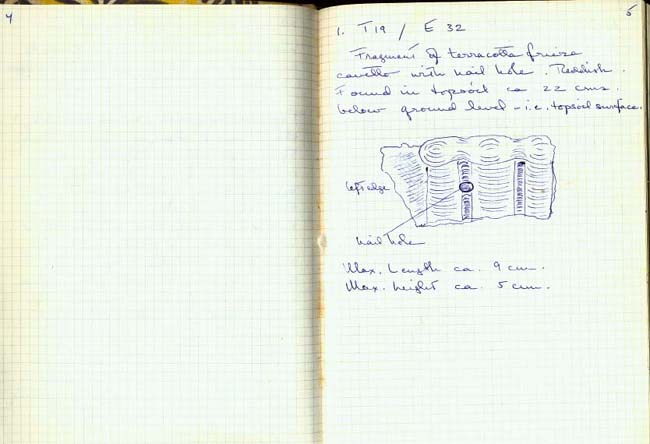 4
5
1. T19 / E 32
Fragment of terracotta frieze
cavetto with nail hole. Reddish.
Found in topsoil ca 22 cms.
below ground level - i.e. topsoil surface.
left edge
nail hole
Max. Length ca. 9 cm.
Max. height ca. 5 cm.